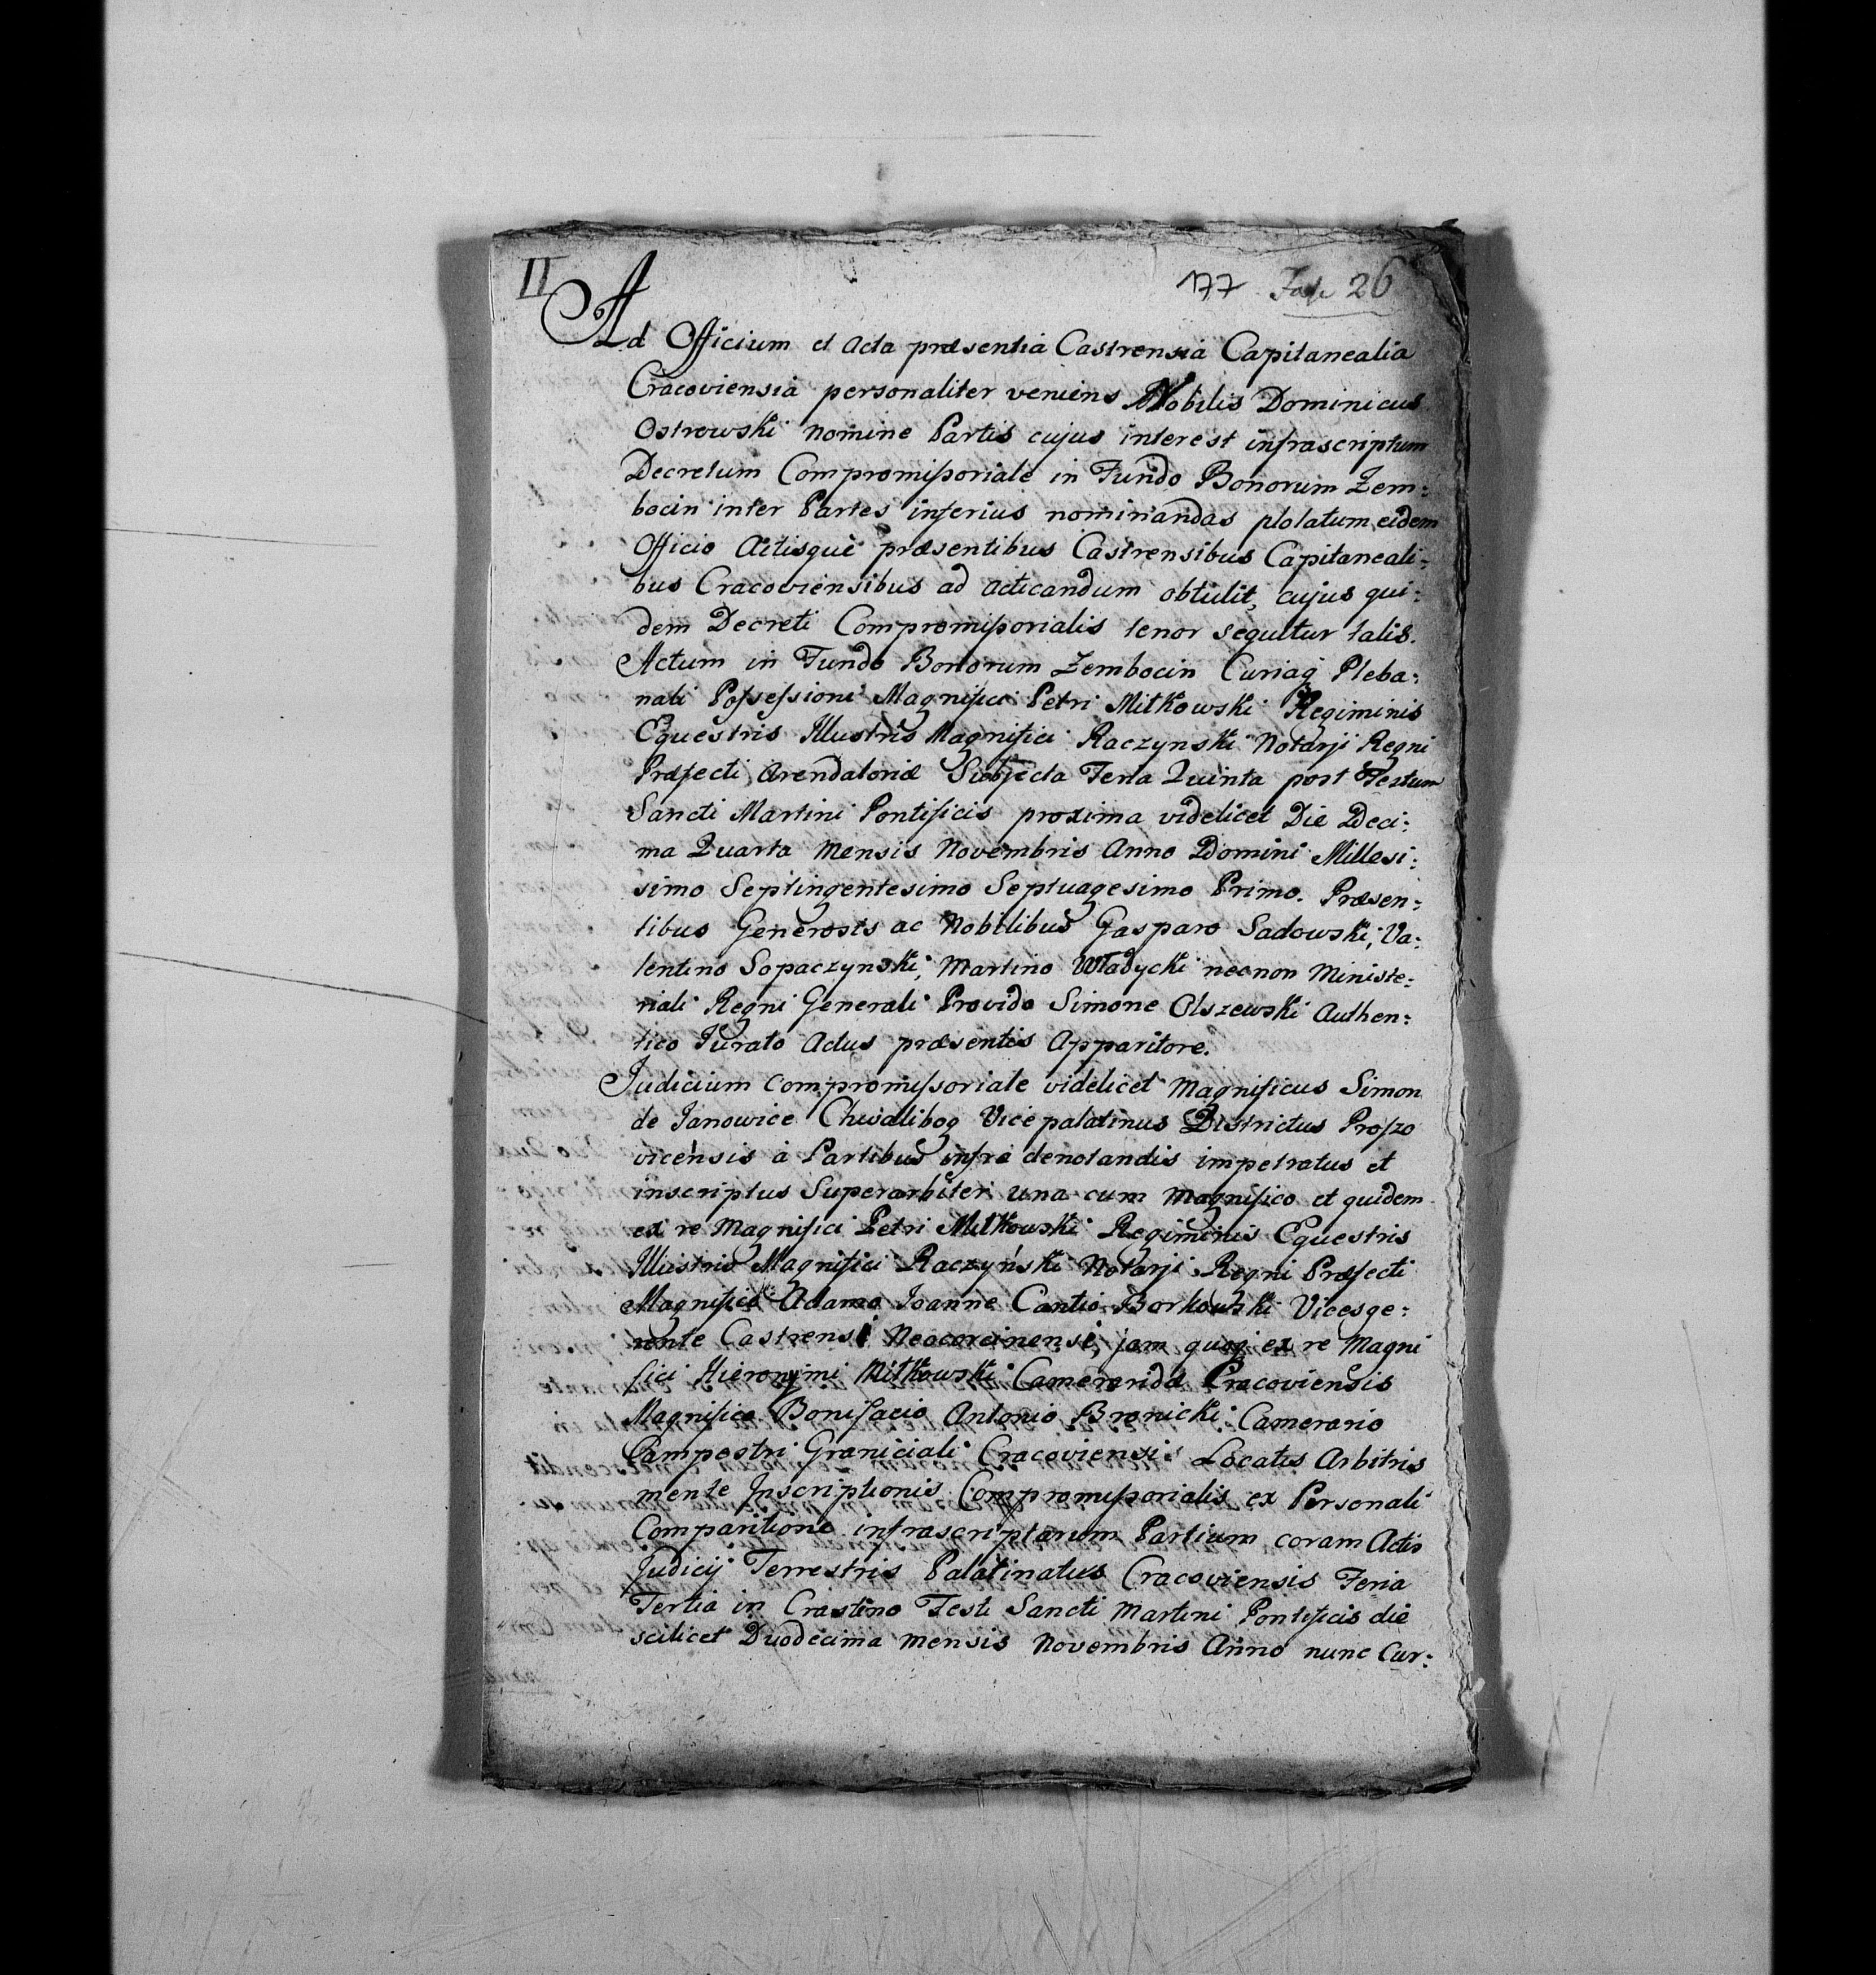 II
177 Fasc 26
Ad Officium et Acta præsentia Castrensia Capitanealia
Cracoviensia personaliter veniens Nobilis Dominicus
Ostrowski nomine Partis cujus interest infrascriptum
Decretum Compromissoriale in Fundo Bonorum Zem:
bocin inter Partes inferius nominandas plolatum eidem
Officio Actisque præsentibus Castrensibus Capitaneali:
bus Cracoviensibus ad acticandum obtulit, cujus qui:
dem Decreti Compromissorialis tenor sequitur talis.
Actum in Fundo Bonorum Zembocin Curiaq Pleba:
nali Possessioni Magnifici Petri Milkowski Regiminis
Equestris Illustris Magnifici Raczynski Notarji Regni
Præfecti Arendatoriæ Subjecta Feria Quinta post Festum
Sancti Martini Pontificis proxima videlicet Die Deci:
ma Quarta Mensis Novembris Anno Domini Millesi:
simo Septingentesimo Septuagesimo Primo. Præsen:
tibus Generosis ac Nobilibus Gasparo Sadowski, Va:
lentino Sopaczynski, Martino Władycki necnon Ministe:
riali Regni Generali Provido Simone Olszewski Authen:
tico Jurato Actus præsentis Apparitore.
Judicium compromissoriale videlicet Magnificus Simon
de Janowice Chwalibog Vice palatinus Districtus Proszo
vicensis à Partibus infra denotandis impetratus et
inscriptus Superarbiter una cum Magnifico et quidem
ex re Magnifici Petri Milkowski Regiminis Equestris
Illustris Magnifici Raczyński Notarji Regni Præfecti
Magnifico Adamo Joanne Cantio Borkowski Vicesge:
rente Castrensi Neocorcinensi, jam quoq ex re Magni
fici Hieronymi Milkowski Camerarida Cracoviensis
Magnifico Bonifacio Antonio Bronicki Camerario
Campestri Graniciali Cracoviensi Locatis Arbitris
mente Inscriptionis Compromissorialis ex Personali
Comparitione infrascriptarum Partium coram Actis
Judicij Terrestris Palatinatus Cracoviensis Feria
Tertia in Crastino Festi Sancti Martini Pontificis die
scilicet Duodecima Mensis Novembris Anno nunc Cur: